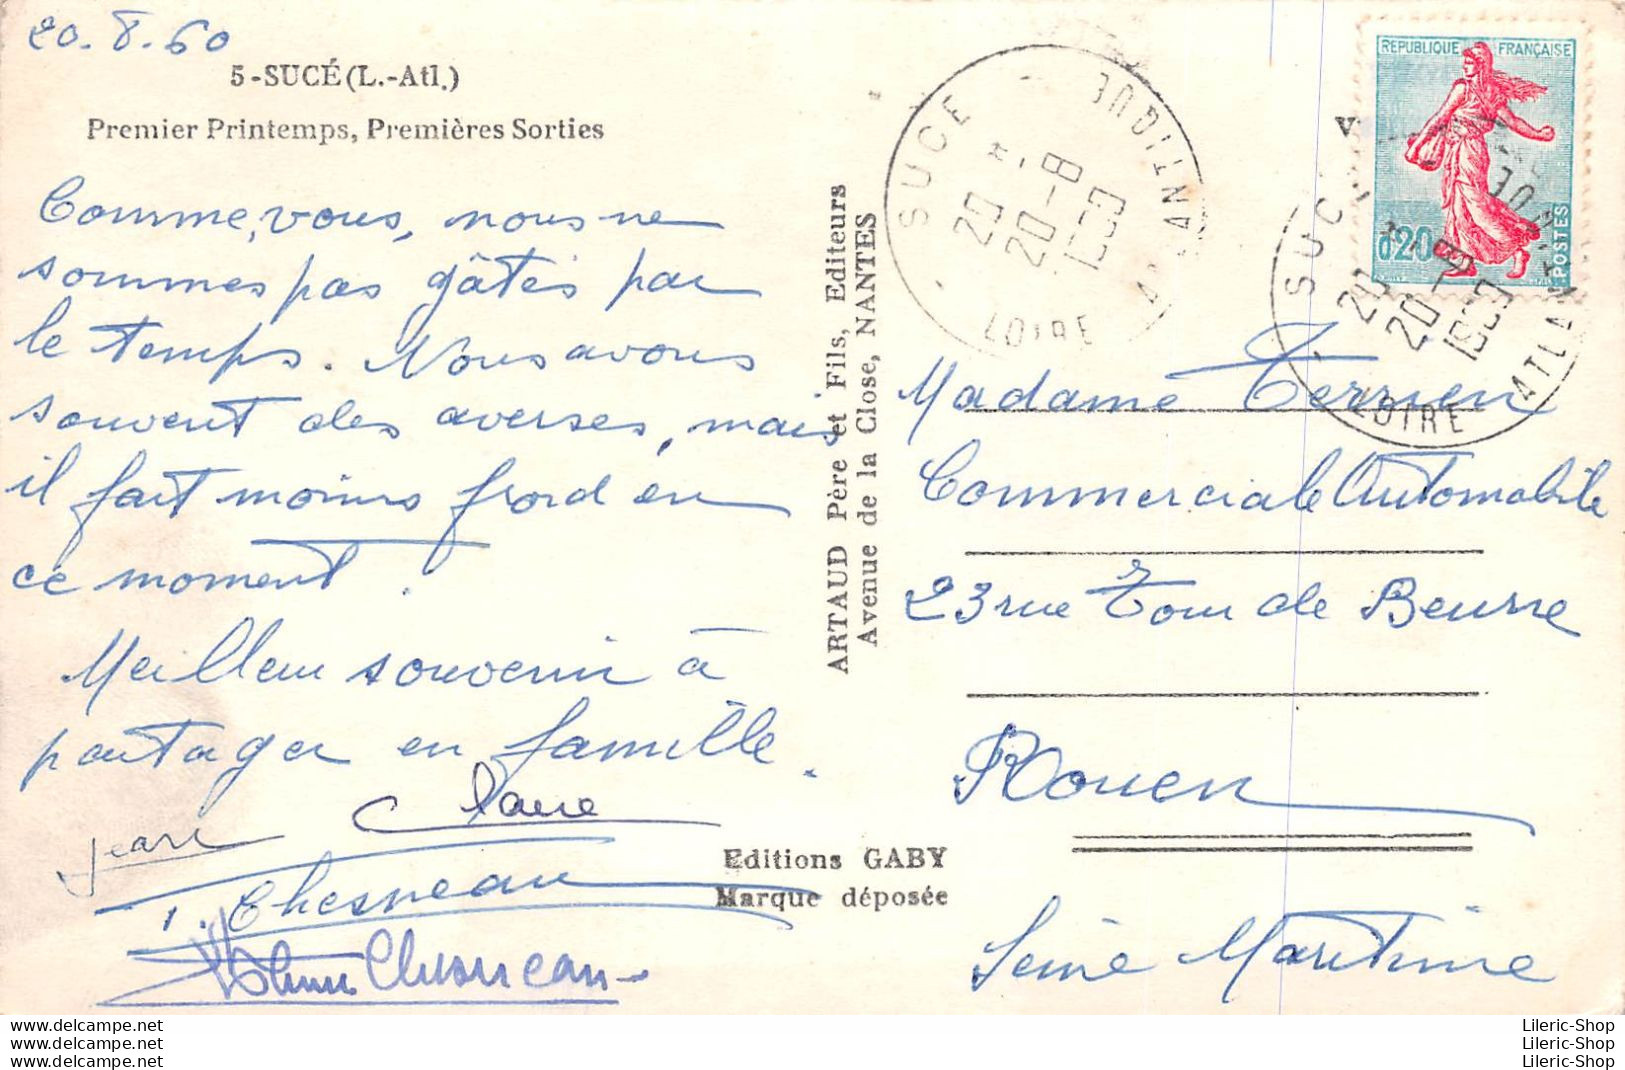 20.8.60
5-SUCÉ (L.-Atl.)
Premier Printemps, Premières Sorties
Comme, vous, nous ne
sommes pas gâtés par
le temps. Nous avons
souvent des averses, mais
il fait moins froid en
ce moment.
Meilleur souvenir à
partager en famille.
Claire
Jean
T. Chesneau
Chesneau
ARTAUD Père et Fils, Editeurs
Avenue de la Close, NANTES
Editions GABY
Marque déposée
SUCE
20 H
20-8
LOIRE ATLANTIQUE
REPUBLIQUE FRANÇAISE
0,20
POSTES
SUCE
20 H
20-8
LOIRE ATLANTIQUE
Madame Terrien
Commerciale Automobile
23 rue Tour de Beurre
Rouen
Seine Maritime
www.delcampe.net
www.delcampe.net
www.delcampe.net
Lileric-Shop
Lileric-Shop
Lileric-Shop